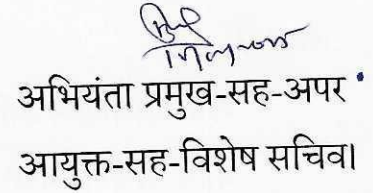 अभियंता प्रमुख-सह-अपर
आयुक्त-सह-विशेष सचिव।